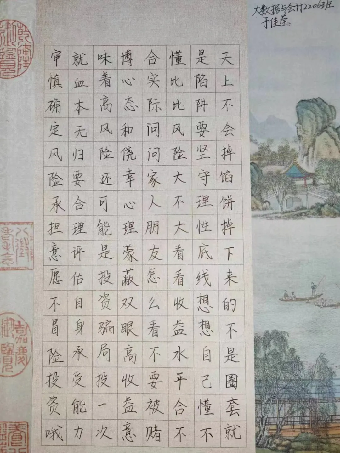 大数据与会计2206班
天上不会掉馅饼掉下来的不是圈套就
是陷阱要坚守理性底线想想自己懂不
懂比比风险大不大看看收益水平合不
合实际问问家人朋友怎么看不要被赌
博心态和侥幸心理蒙蔽双眼高收益意
味着高风险还可能是投资骗局投一次
就血本无归要合理评估自身承受能力
审慎确定风险承担意愿不冒险投资哦